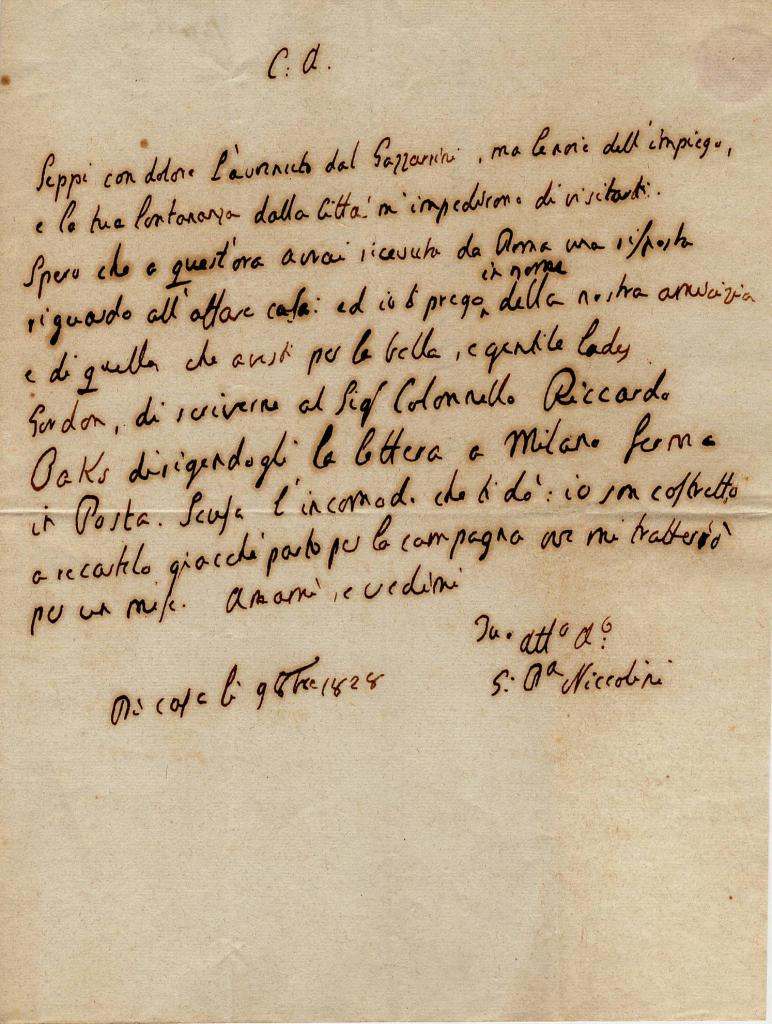 C: A.
Seppi con dolore l'avvenuto dal Gazzarrini, ma le noie dell'impiego,
e la tua lontananza dalla Città m'impediscono di visitarti.
Spero che a quest'ora avrai ricevuta da Roma una risposta
in nome
riguardo all'affare casa: ed io ti prego della nostra amicizia
e di quella che avesti per la bella, e gentile Lady
Gordon, di scriverne al Sigr Colonnello Riccardo
Oaks dirigendogli la lettera a Milano ferma
in Posta. Scusa l'incomodo che ti dò: io son costretto
a recartelo giacchè parto per la campagna ove mi tratterrò
per un mese. Amami, e credimi
Tuo atto Ao:
G: Bа Niccolini
Di casa li 9 8bre 1828